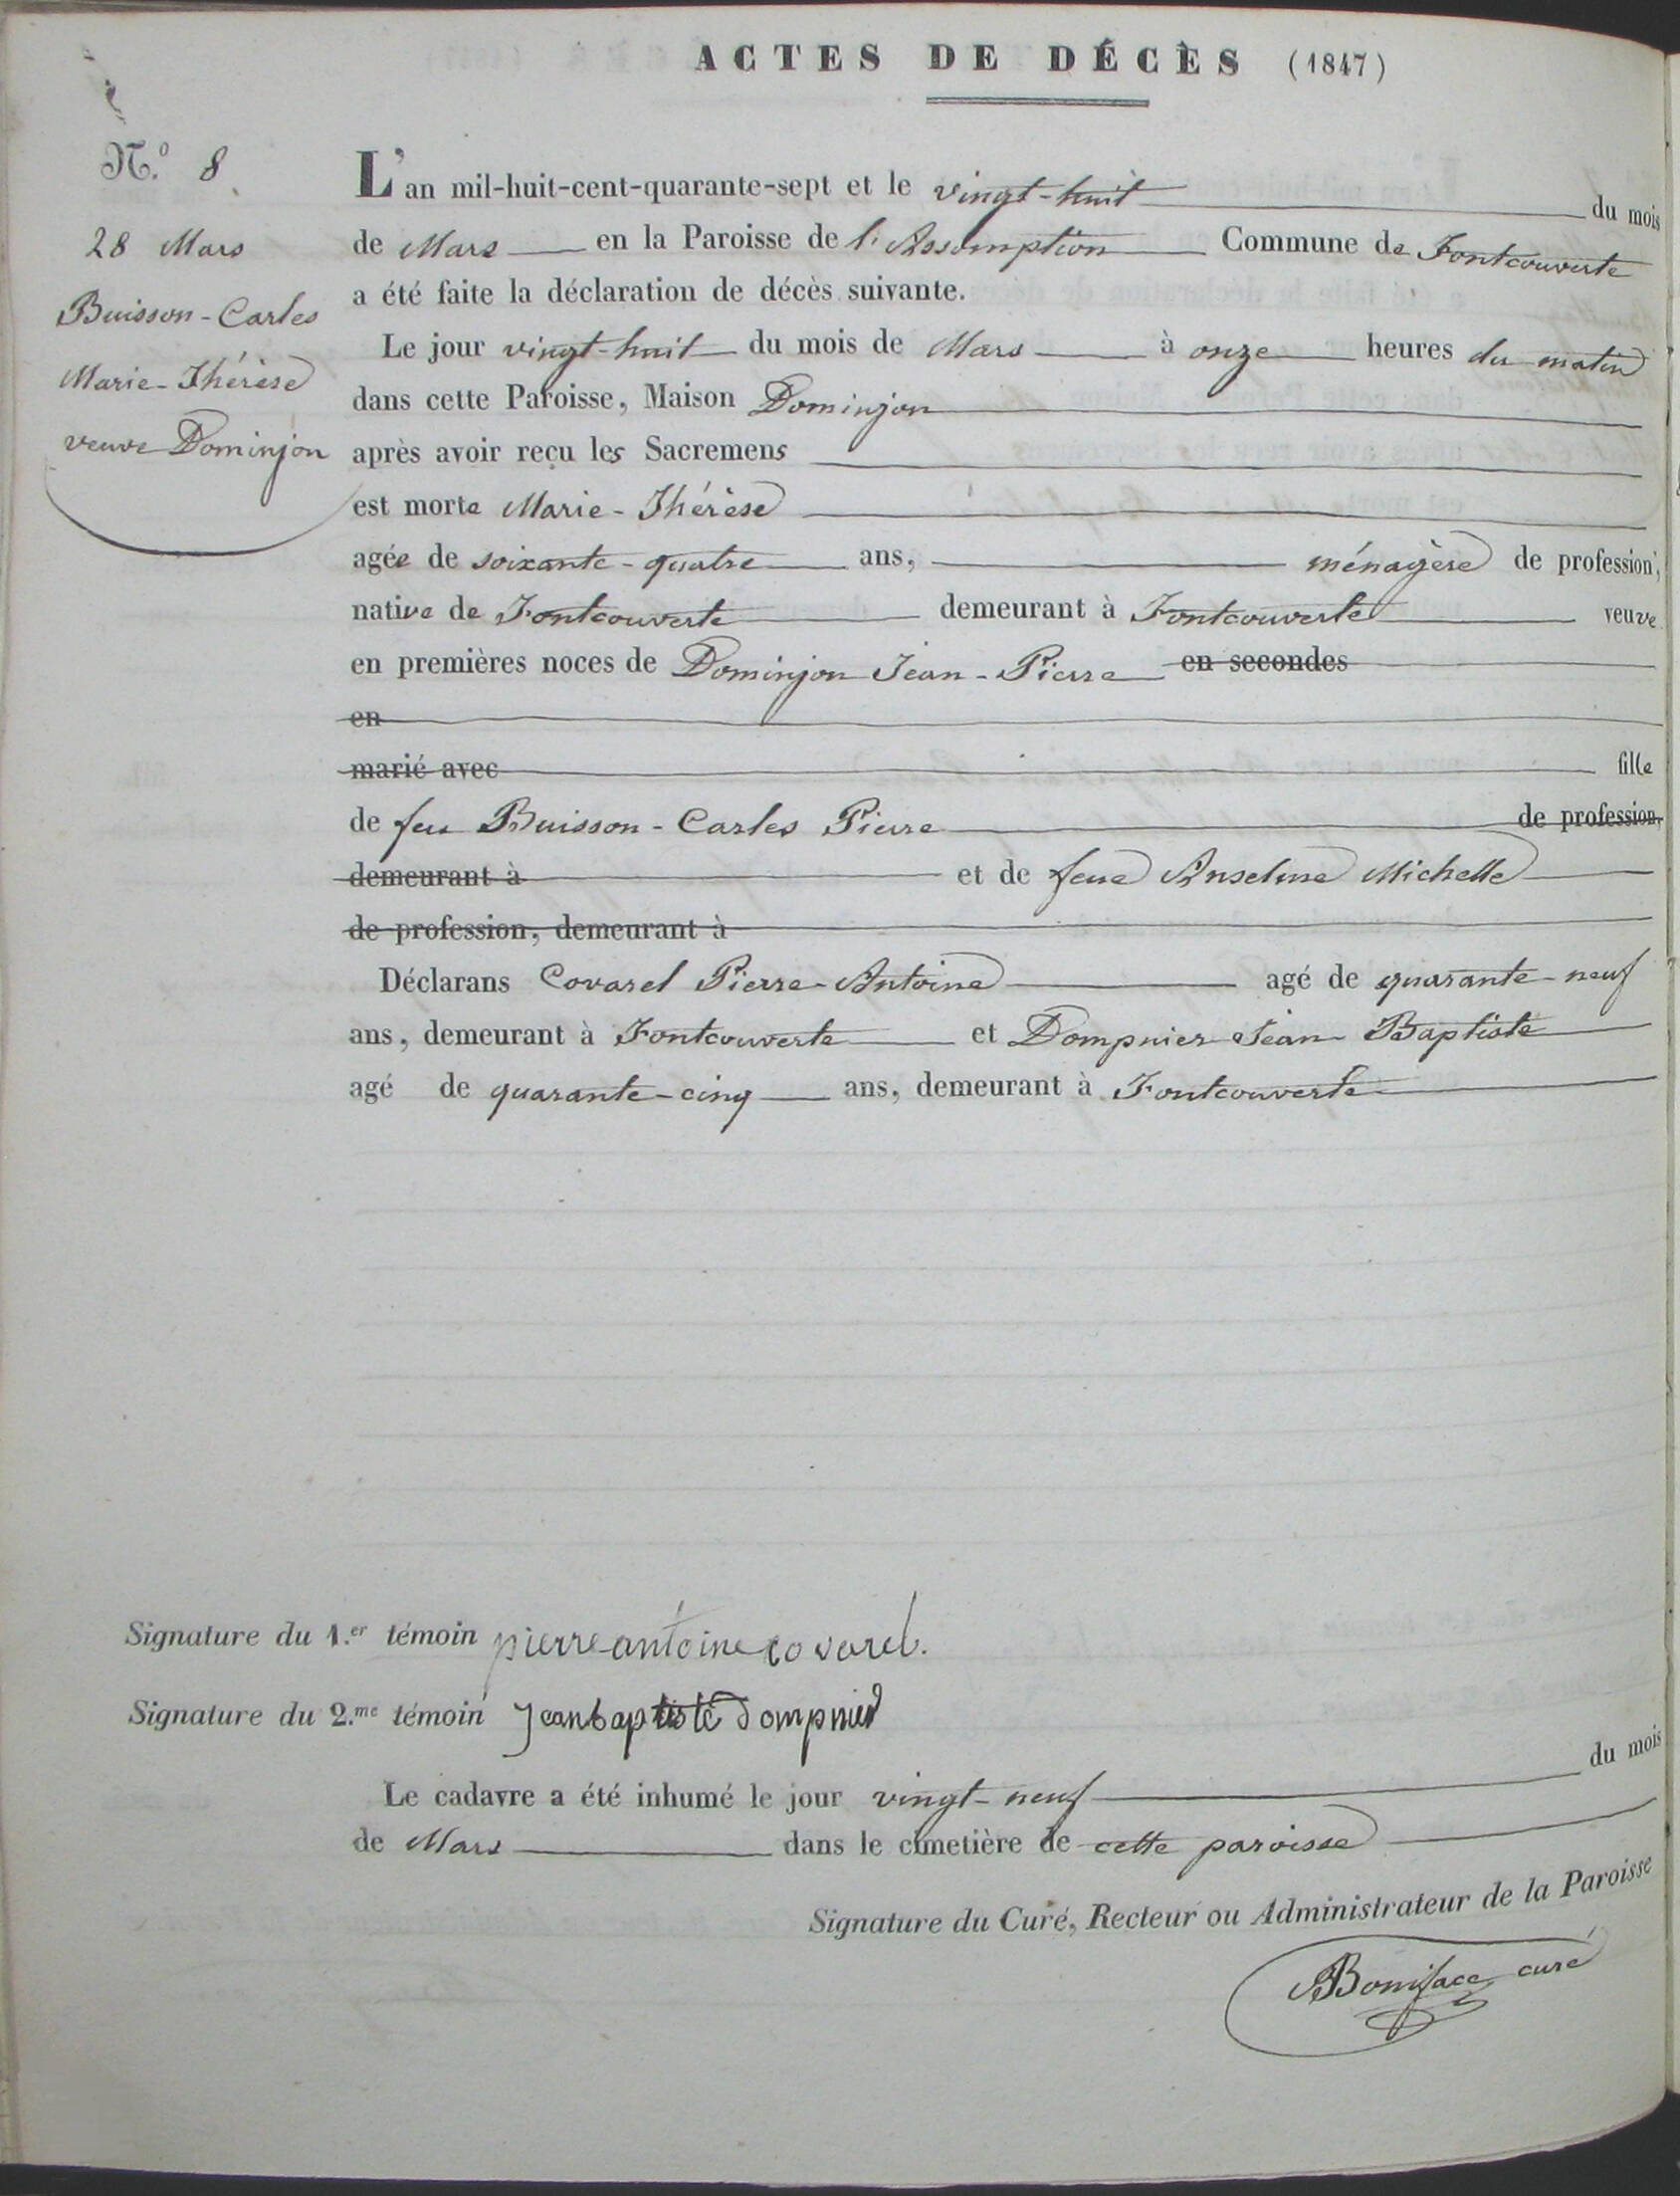 ACTES DE DÉCÈS (1847)
N.º 8
28 Mars
Buisson-Carles
Marie-Thérèse
veuve Dominjon
L'an mil-huit-cent-quarante-sept et le vingt-huit du mois
de Mars en la Paroisse de l'Assomption Commune de Fontcouverte
a été faite la déclaration de décès suivante.
Le jour vingt-huit du mois de Mars à onze heures du matin
dans cette Paroisse, Maison Dominjon
après avoir reçu les Sacremens
est morte Marie-Thérèse
agée de soixante-quatre ans, ménagère de profession,
native de Fontcouverte demeurant à Fontcouverte veuve
en premières noces de Dominjon Jean-Pierre en secondes
en
marié avec fille
de feu Buisson-Carles Pierre de profession,
demeurant à et de feue Anselme Michelle
de profession, demeurant à
Déclarans Covarel Pierre-Antoine agé de quarante-neuf
ans, demeurant à Fontcouverte et Dompnier Jean Baptiste
agé de quarante-cinq ans, demeurant à Fontcouverte
Signature du 1.er témoin pierre antoine covarel.
Signature du 2.me témoin Jeanbaptiste dompnier
Le cadavre a été inhumé le jour vingt-neuf du mois
de Mars dans le cimetière de cette paroisse
Signature du Curé, Recteur ou Administrateur de la Paroisse
Boniface curé